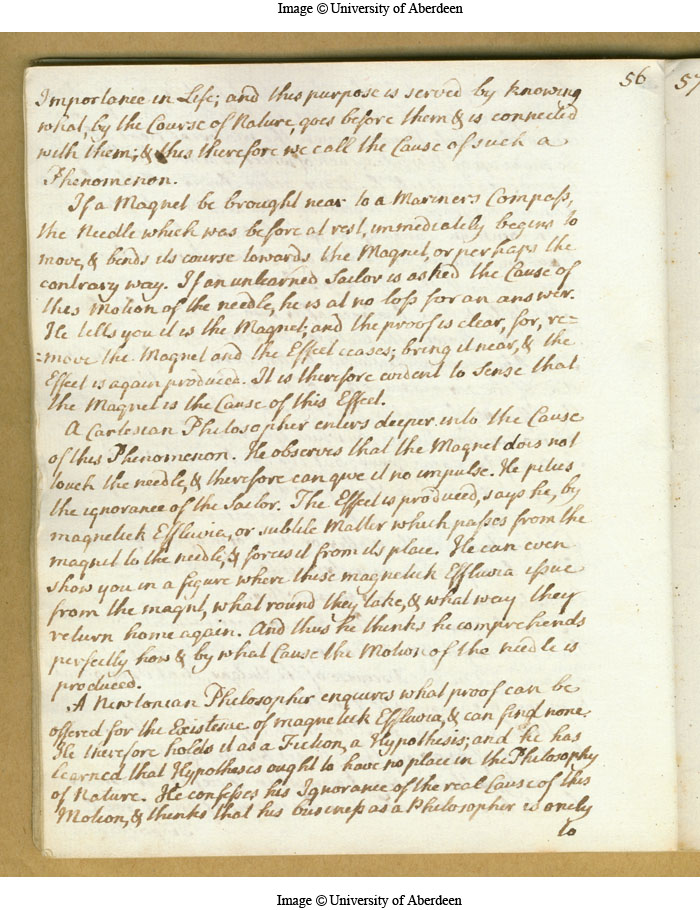 Image © University of Aberdeen
56
57
Importance in Life; and this purpose is served by knowing
what, by the Course of Nature, goes before them & is connected
with them; & this therefore we call the Cause of such a
Phenomenon.
If a Magnet be brought near to a Mariners Compass,
the Needle which was before at rest, immediately begins to
move, & bends its course towards the Magnet, or perhaps the
contrary way. If an unlearned Sailor is asked the Cause of
this Motion of the needle, he is at no loss for an answer.
He tells you it is the Magnet; and the proof is clear, for, re=
=move the Magnet and the Effect ceases; bring it near, & the
Effect is again produced. It is therefore evident to Sense that
the Magnet is the Cause of this Effect.
A Cartesian Philosopher enters deeper into the Cause
of this Phenomenon. He observes that the Magnet does not
touch the needle, & therefore can give it no impulse. He pities
the ignorance of the Sailor. The Effect is produced, says he, by
magnetick Effluvia, or subtile Matter which passes from the
magnet to the needle, & forces it from its place. He can even
show you in a figure where these magnetick Effluvia issue
from the magnt, what round they take, & what way they
return home again. And thus he thinks he comprehends
perfectly how & by what Cause the Motion of the needle is
produced.
A Newtonian Philosopher enquires what proof can be
offered for the Existense of magnetick Effluvia, & can find none.
He therefore holds it as a Fiction, a Hypothesis; and he has
learned that Hypotheses ought to have no place in the Philosophy
of Nature. He confesses his Ignorance of the real Cause of this
Motion, & thinks that his business as a Philosopher is onely
to
Image © University of Aberdeen